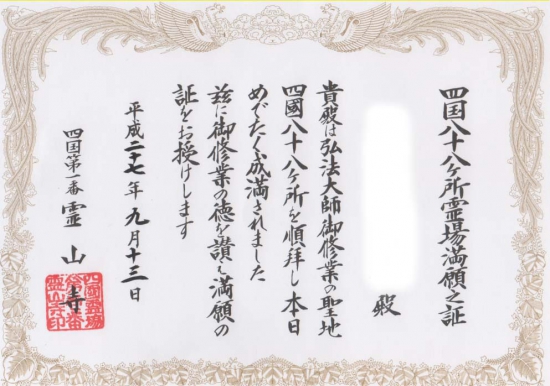 四国八十八ヶ所霊場満願之証
殿
貴殿は弘法大師御修業の聖地
四國八十八ヶ所を順拝し本日
めでたく成満されました
茲に御修業の徳を讃え満願の
証をお授けします
平成二十七年九月十三日
四国第一番 霊山寺